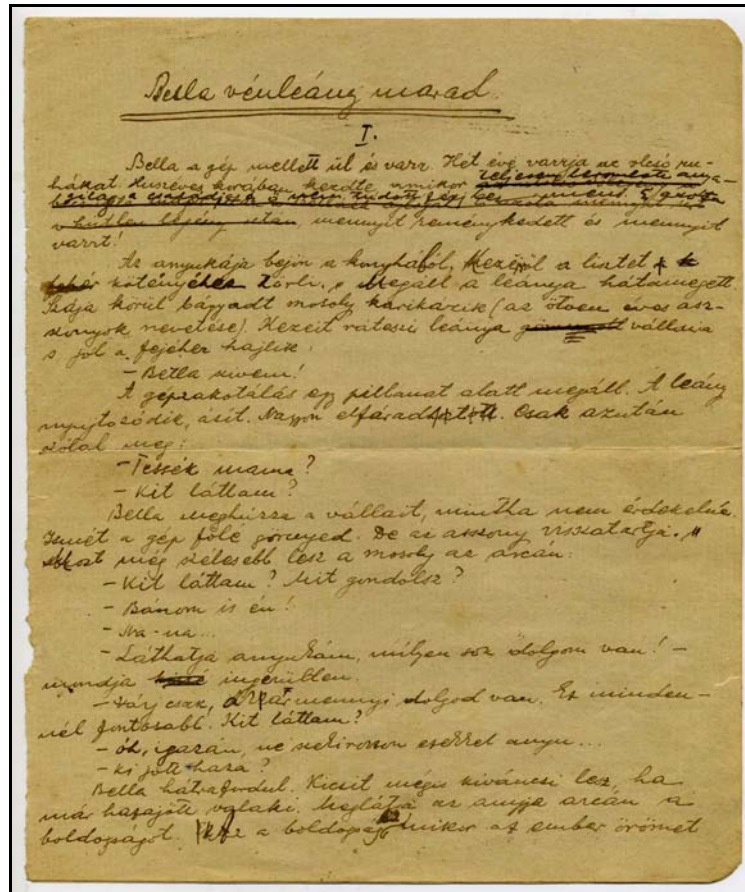 Bella vénleány marad.
I.
Bella a gép mellett ül és varr. Hét éve varrja az olcsó ru-
hákat. Huszéves korában kezdte, amikor teljesen
a hütlen legény után, mennyit reménykedett és mennyit
varrt!
Az anyukája bejön a konyhából, kezéről a lisztet
fehér kötényéhez törli, Megáll a leánya hátamegett.
Szája körül bágyadt mosoly karikázik (az ötven éves asz-
szonyok nevetése). Kezeit ráteszi leánya vállaira
s jól a fejéhez hajlik.
- Bella szivem!
A gépzakotálás egy pillanat alatt megáll. A leány
nyujtozódik, ásit. Nagyon elfáradt. Csak azután
szólal meg:
- Tessék mama?
- Kit láttam?
Bella meghúzza a vállait, mintha nem érdekelné.
Ismét a gép fölé görnyed. De az asszony visszatartja.
még szélesebb lesz a mosoly az arcán:
- Kit láttam? Mit gondolsz?
- Bánom is én!
- Na-na...
- Láthatja anyukám, milyen sok dolgom van! -
mondja ingerülten.
- Várj csak, akármennyi dolgod van. Ez minden-
nél fontosabb. Kit láttam?
- Óh, igazán, ne szekirozzon ezekkel anyu...
- Ki jött haza?
Bella hátrafordul. Kicsit mégis kiváncsi lesz, ha
már hazajött valaki. Meglátja az anyja arcán a
boldogságot. a boldogság mikor az ember örömet